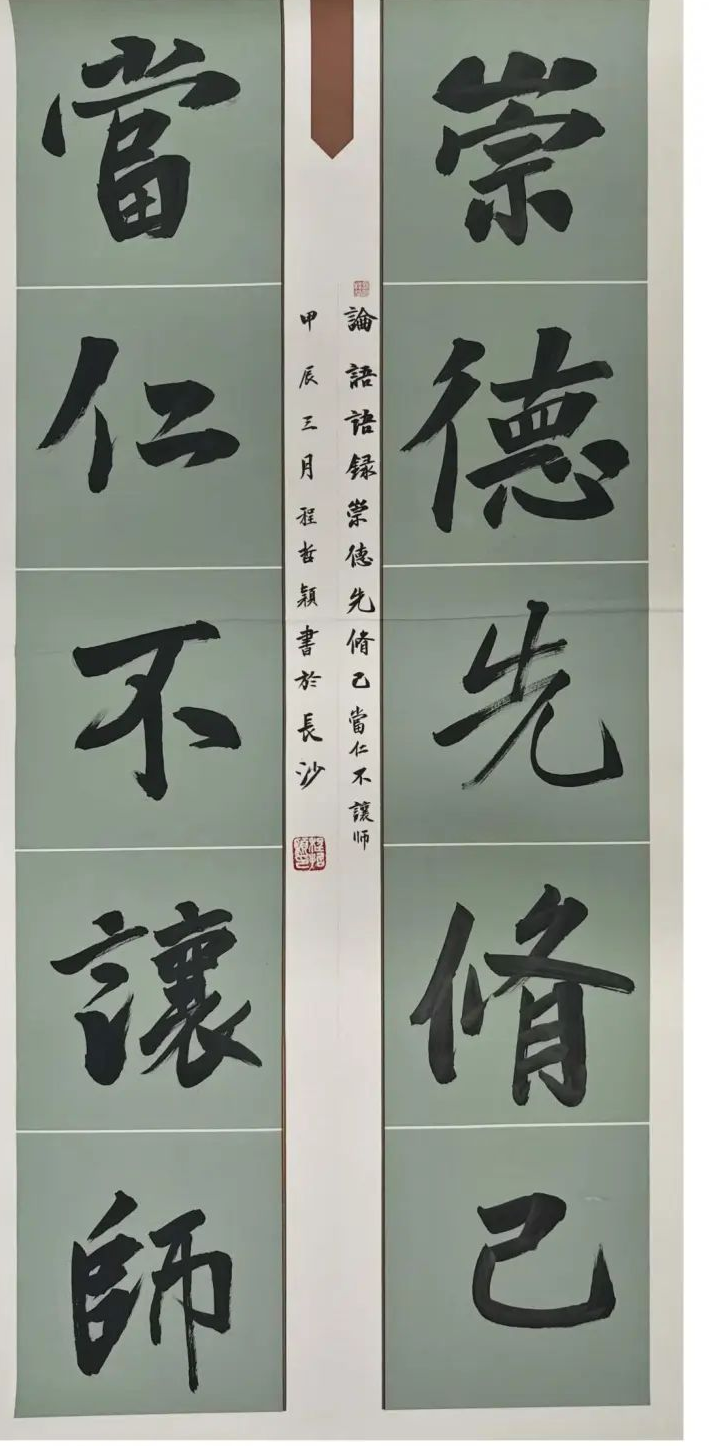 崇德先脩己
當仁不讓師
論語語録崇德先脩己當仁不讓师
甲辰三月程哲穎書於長沙